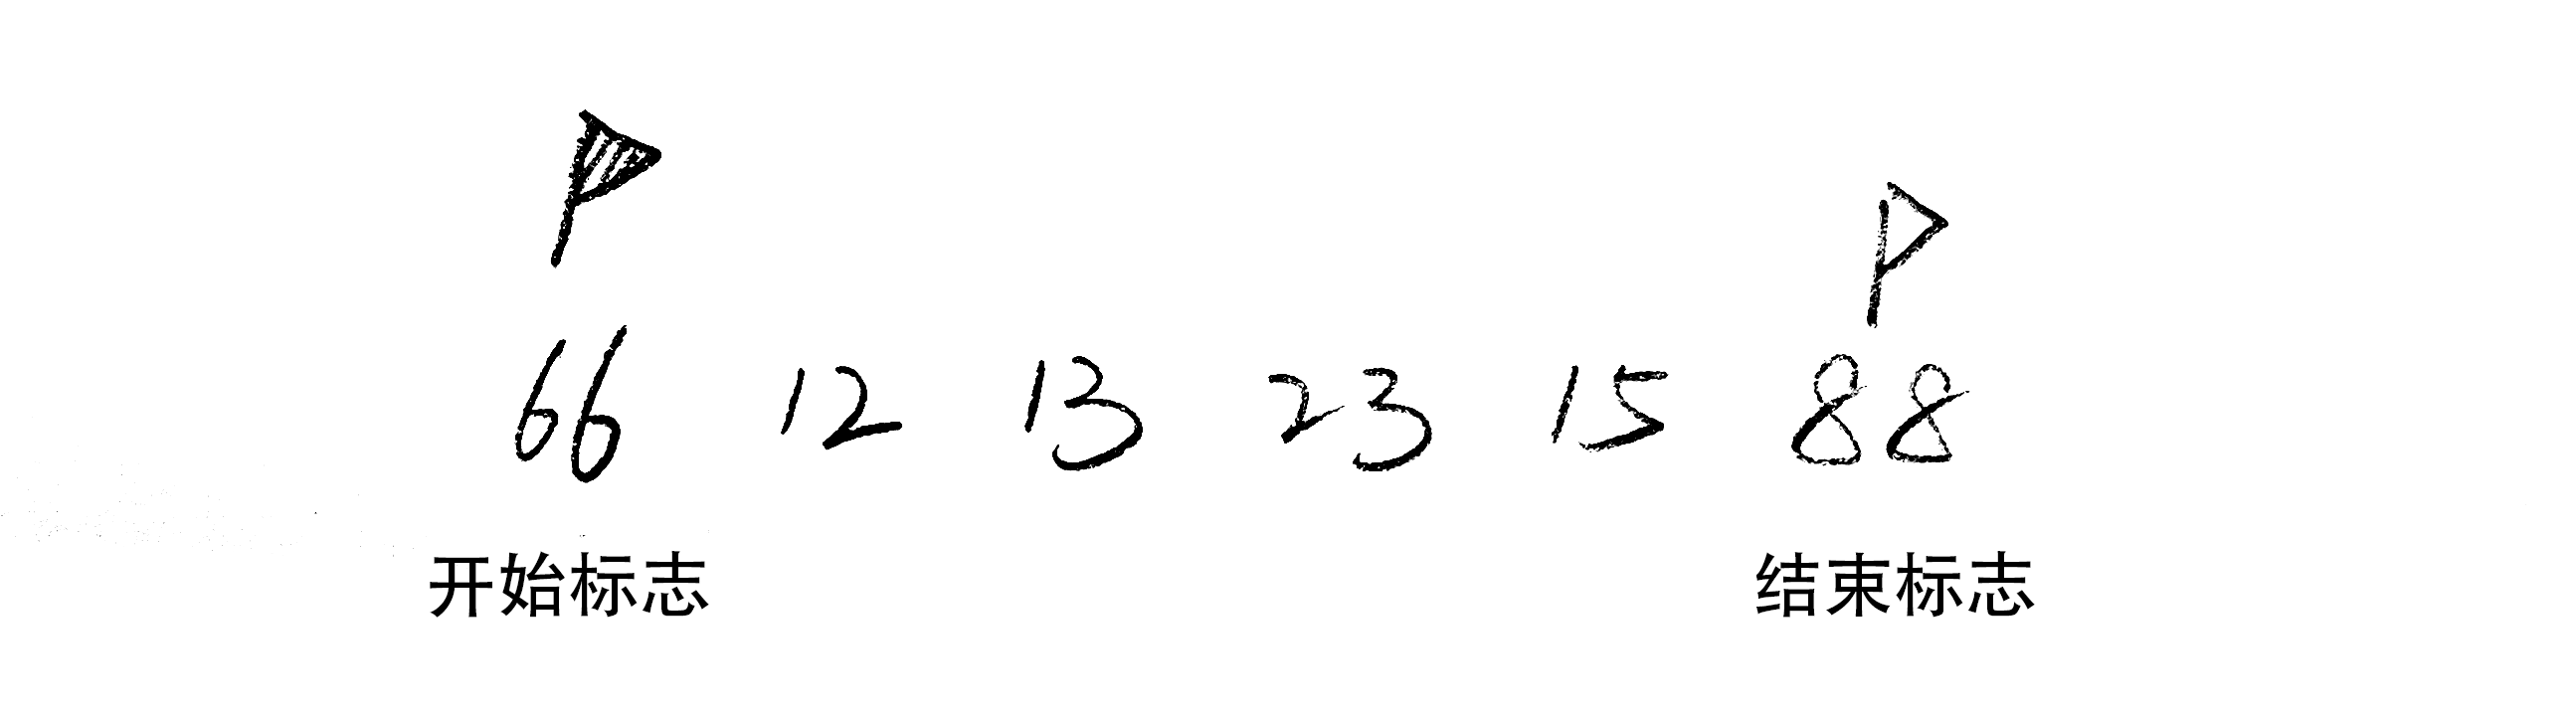 66 12 13 23 15 88
开始标志 结束标志